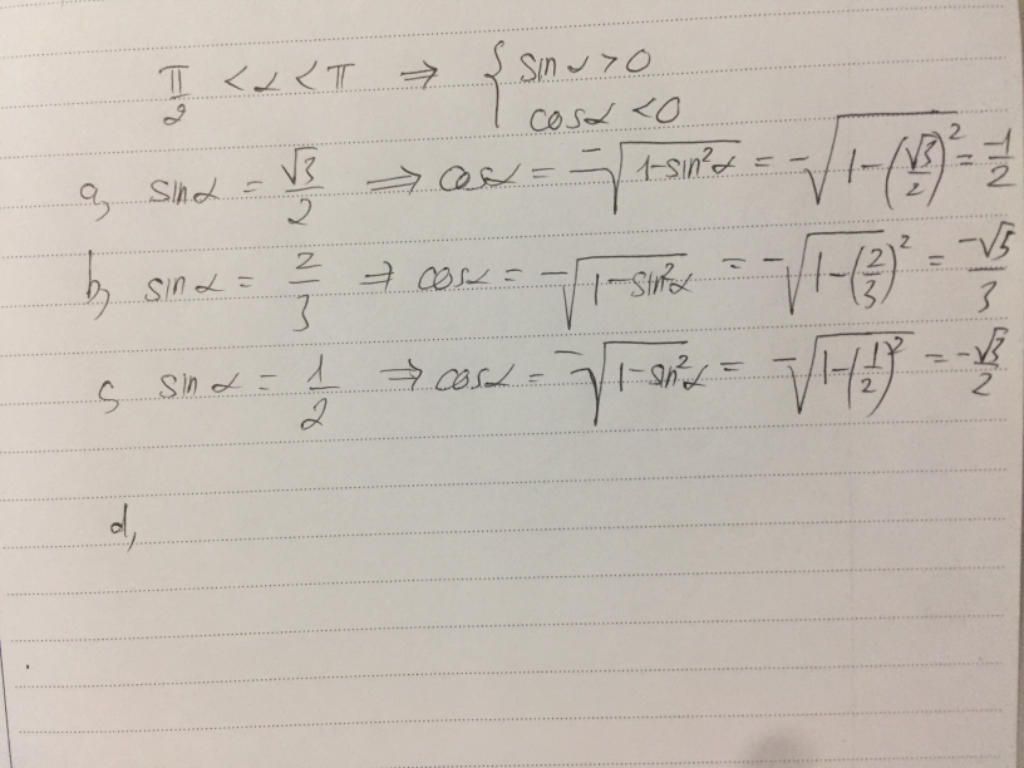 π/2 < α < π ⇒ { sin α > 0
cos α < 0
a, sin α = √3/2 ⇒ cos α = -√(1-sin²α) = -√(1-(√3/2)²) = -1/2
b, sin α = 2/3 ⇒ cos α = -√(1-sin²α) = -√(1-(2/3)²) = -√5/3
c, sin α = 1/2 ⇒ cos α = -√(1-sin²α) = -√(1-(1/2)²) = -√3/2
d,